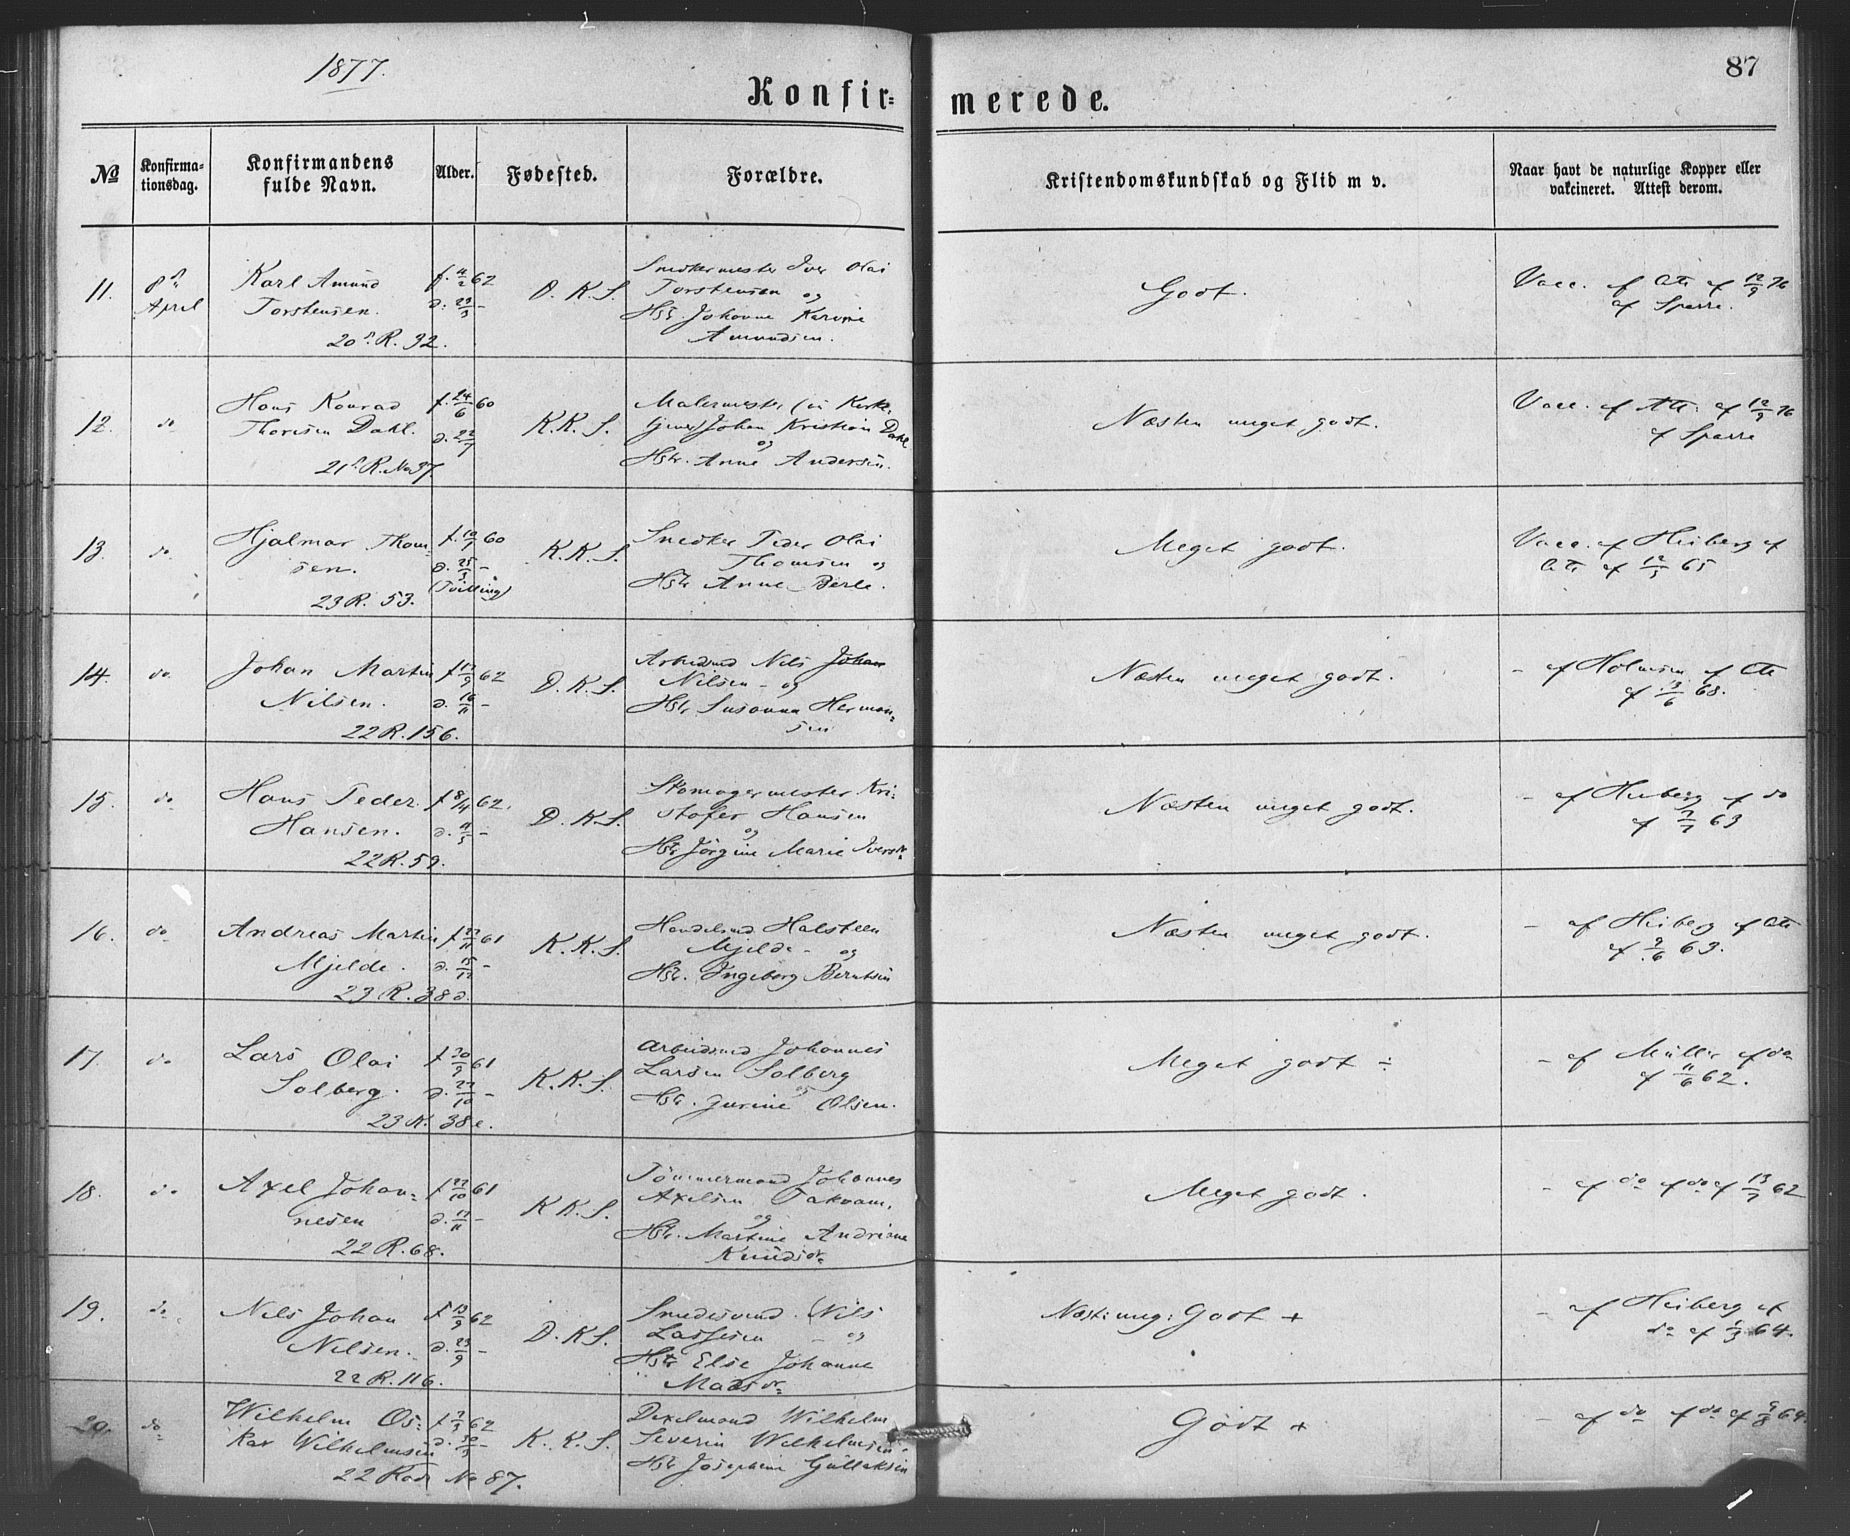 1877.
87
Konfir=
merede.
No
Konfirma=
tionsdag.
Konfirmandens
fulde Navn.
Alder.
Fødested.
Forældre.
Kristendomskundskab og Flid m v.
Naar havt de naturlige Kopper eller
vakcineret. Attest derom.
11.
8de
April
Karl Amund
Torstensen.
20de R. 32.
f. 4/2 62
D. K. S.
Snedkermester Iver Olai
Torstensen og
Hst. Johanne Karine
Amundsen.
Godt.
Vacc. af Att. af 12/9 76
af Sparre.
12.
do
Hans Konrad
Thoresen Dahl.
21de R. No 37.
f. 24/6 60
d. 22/7
K. K. S.
Malermester
Johan Kristian Dahl
og
Hst. Anne Andersen.
Næsten meget godt.
Vacc. af Att. af 12/9 76
af Sparre
13.
do
Hjalmar Thom-
sen.
23 R. 53.
60
d. 25/3 -
(Tvilling)
K. K. S.
Snedker Peder Olai
Thomsen og
Hst. Anne Berle.
Meget godt.
Vacc. af Heiberg af
Att. af 12/5 65
14.
do
Johan Martin
Nilsen.
22 R. 156.
f 17/9 62
d. 16/11 -
D. K. S.
Arbeidsmd Nils Johan
Nilsen - og
Hst. Susanna Herman=
sen
Næsten meget godt.
- af Holmsen af Att
af 13/6 68.
15.
do
Hans Peder
Hansen.
22 R. 59.
f 8/4 62.
d. 11/5 -
D. K. S.
Skomagermester Kri-
stofer Hansen
og
Hst. Jørgine Marie Iversdr
Næsten meget godt.
- af Heiberg af do
af 7/7 63
16.
do
Andreas Martin
Mjelde.
23 R. 38 d.
f 22/11 61
d. 15/12 -
K. K. S.
Handelsmd Halsteen
Mjelde - og
Hst. Ingeborg Berntsen
Næsten meget godt.
- af Heiberg af Att
af 9/6 63.
17.
do
Lars Olai
Solberg.
23 R. 38 e.
f 30/9 61
d. 27/10 -
K. K. S.
Arbeidsmd Johannes
Larsen Solberg
og
Hst. Jurine Olsen.
Meget godt ÷
- af Müller af do
af 11/6 62.
18.
do
Axel Johan=
nesen
22 R. 68.
f 22/10 61
d. 17/11 -
K K. S.
Tømmermand Johannes
Axelsen Takvam,
og
Hst. Martine Andriane
Knudsdr
Meget godt.
- af do af do af 13/7 62
19.
do
Nils Johan
Nilsen.
22 R. 116.
f 13/9 62
d. 23/9 -
D. K S.
Smedesvend Nils
Lassesen - og
Hst Else Johanne
Madsdr
Næst: meg: Godt +
- af Heiberg af
do af 1/3 64.
20.
do
Wilhelm Os-
kar Wilhelmsen
22 Rode No 87.
62
K. K. S.
Dixelmand Wilhelm
Severin Wilhelmsen
Hst Josephine Gullaksen
Godt +
- af do af do af 9/8 64.